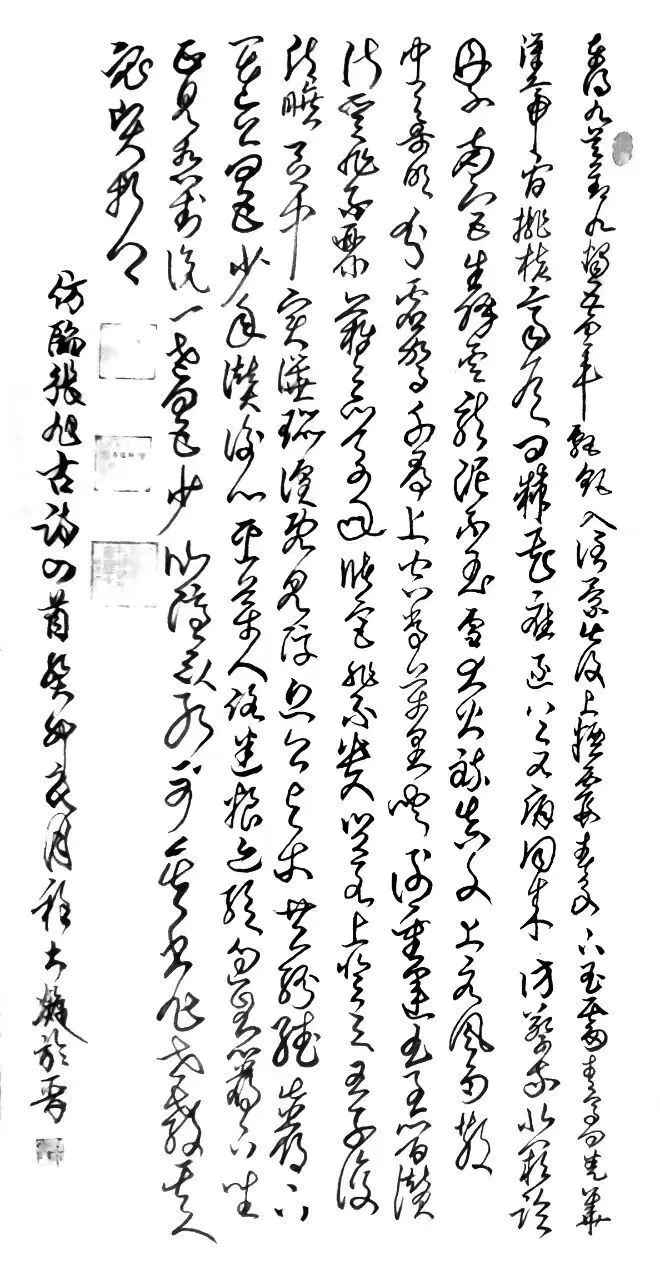 東明九芝蓋北燭五雲車飄颻入倒景出沒上煙霞春泉下玉霤青鳥向金華
漢帝看桃核齊侯問棘花應逐上元酒同來訪蔡家北闕臨
丹水南宮生絳雲龍泥印玉策大火練真文上元風雨散
中天哥吹分虛駕千尋上空香萬里聞謝靈運王子晉讚
淑質非不麗難之以萬年儲宮非不貴豈若上登天王子復
清曠區中實譁囂喧既見浮丘公與爾共紛繙巖下
一老公四五少年讚衡山採藥人路迷糧亦絕過息巖下坐
正見相對說一老四五少仙隱不別可其書非世教其人
必賢哲
仿臨張旭古詩四首癸卯亥月程大於晉